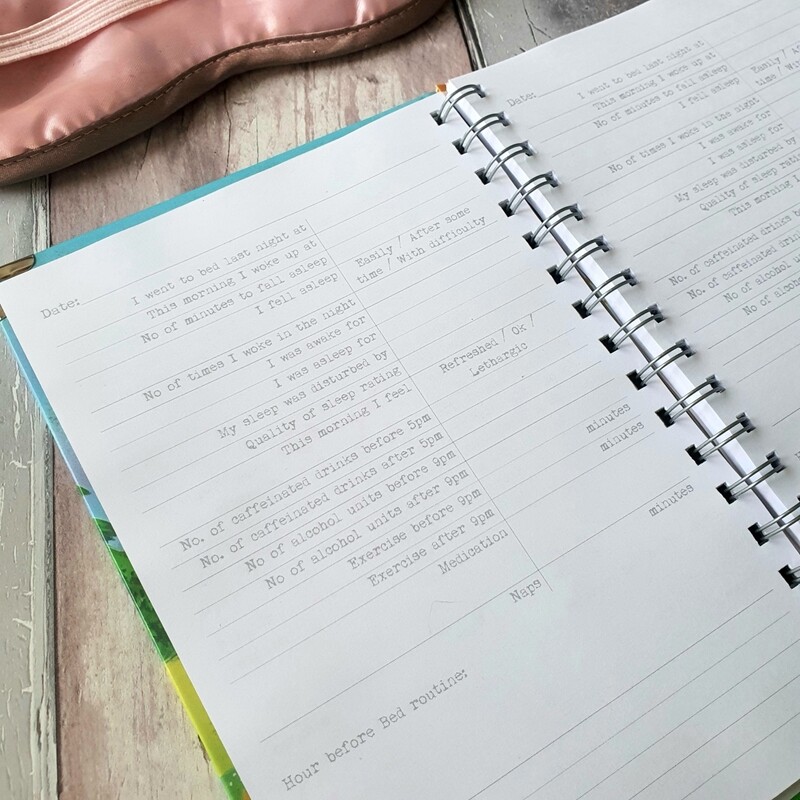 Date:
I went to bed last night at
This morning I woke up at
No of minutes to fall asleep
I fell asleep
Easily / After some
time / With difficulty
No of times I woke in the night
I was awake for
I was asleep for
My sleep was disturbed by
Quality of sleep rating
This morning I feel
Refreshed / Ok /
Lethargic
No. of caffeinated drinks before 5pm
No. of caffeinated drinks after 5pm
No of alcohol units before 9pm
No of alcohol units after 9pm
Exercise before 9pm
minutes
Exercise after 9pm
minutes
Medication
Naps
minutes
Hour before Bed routine:
Date:
I went to bed last night at
This morning I woke up at
No of minutes to fall asleep
I fell asleep
Easily /
time /
No of times I woke in the night
I was awake for
I was asleep for
My sleep was disturbed by
Quality of sleep rating
This morning I
No. of caffeinated drinks
No. of caffeinated drinks
No of alcohol
No of